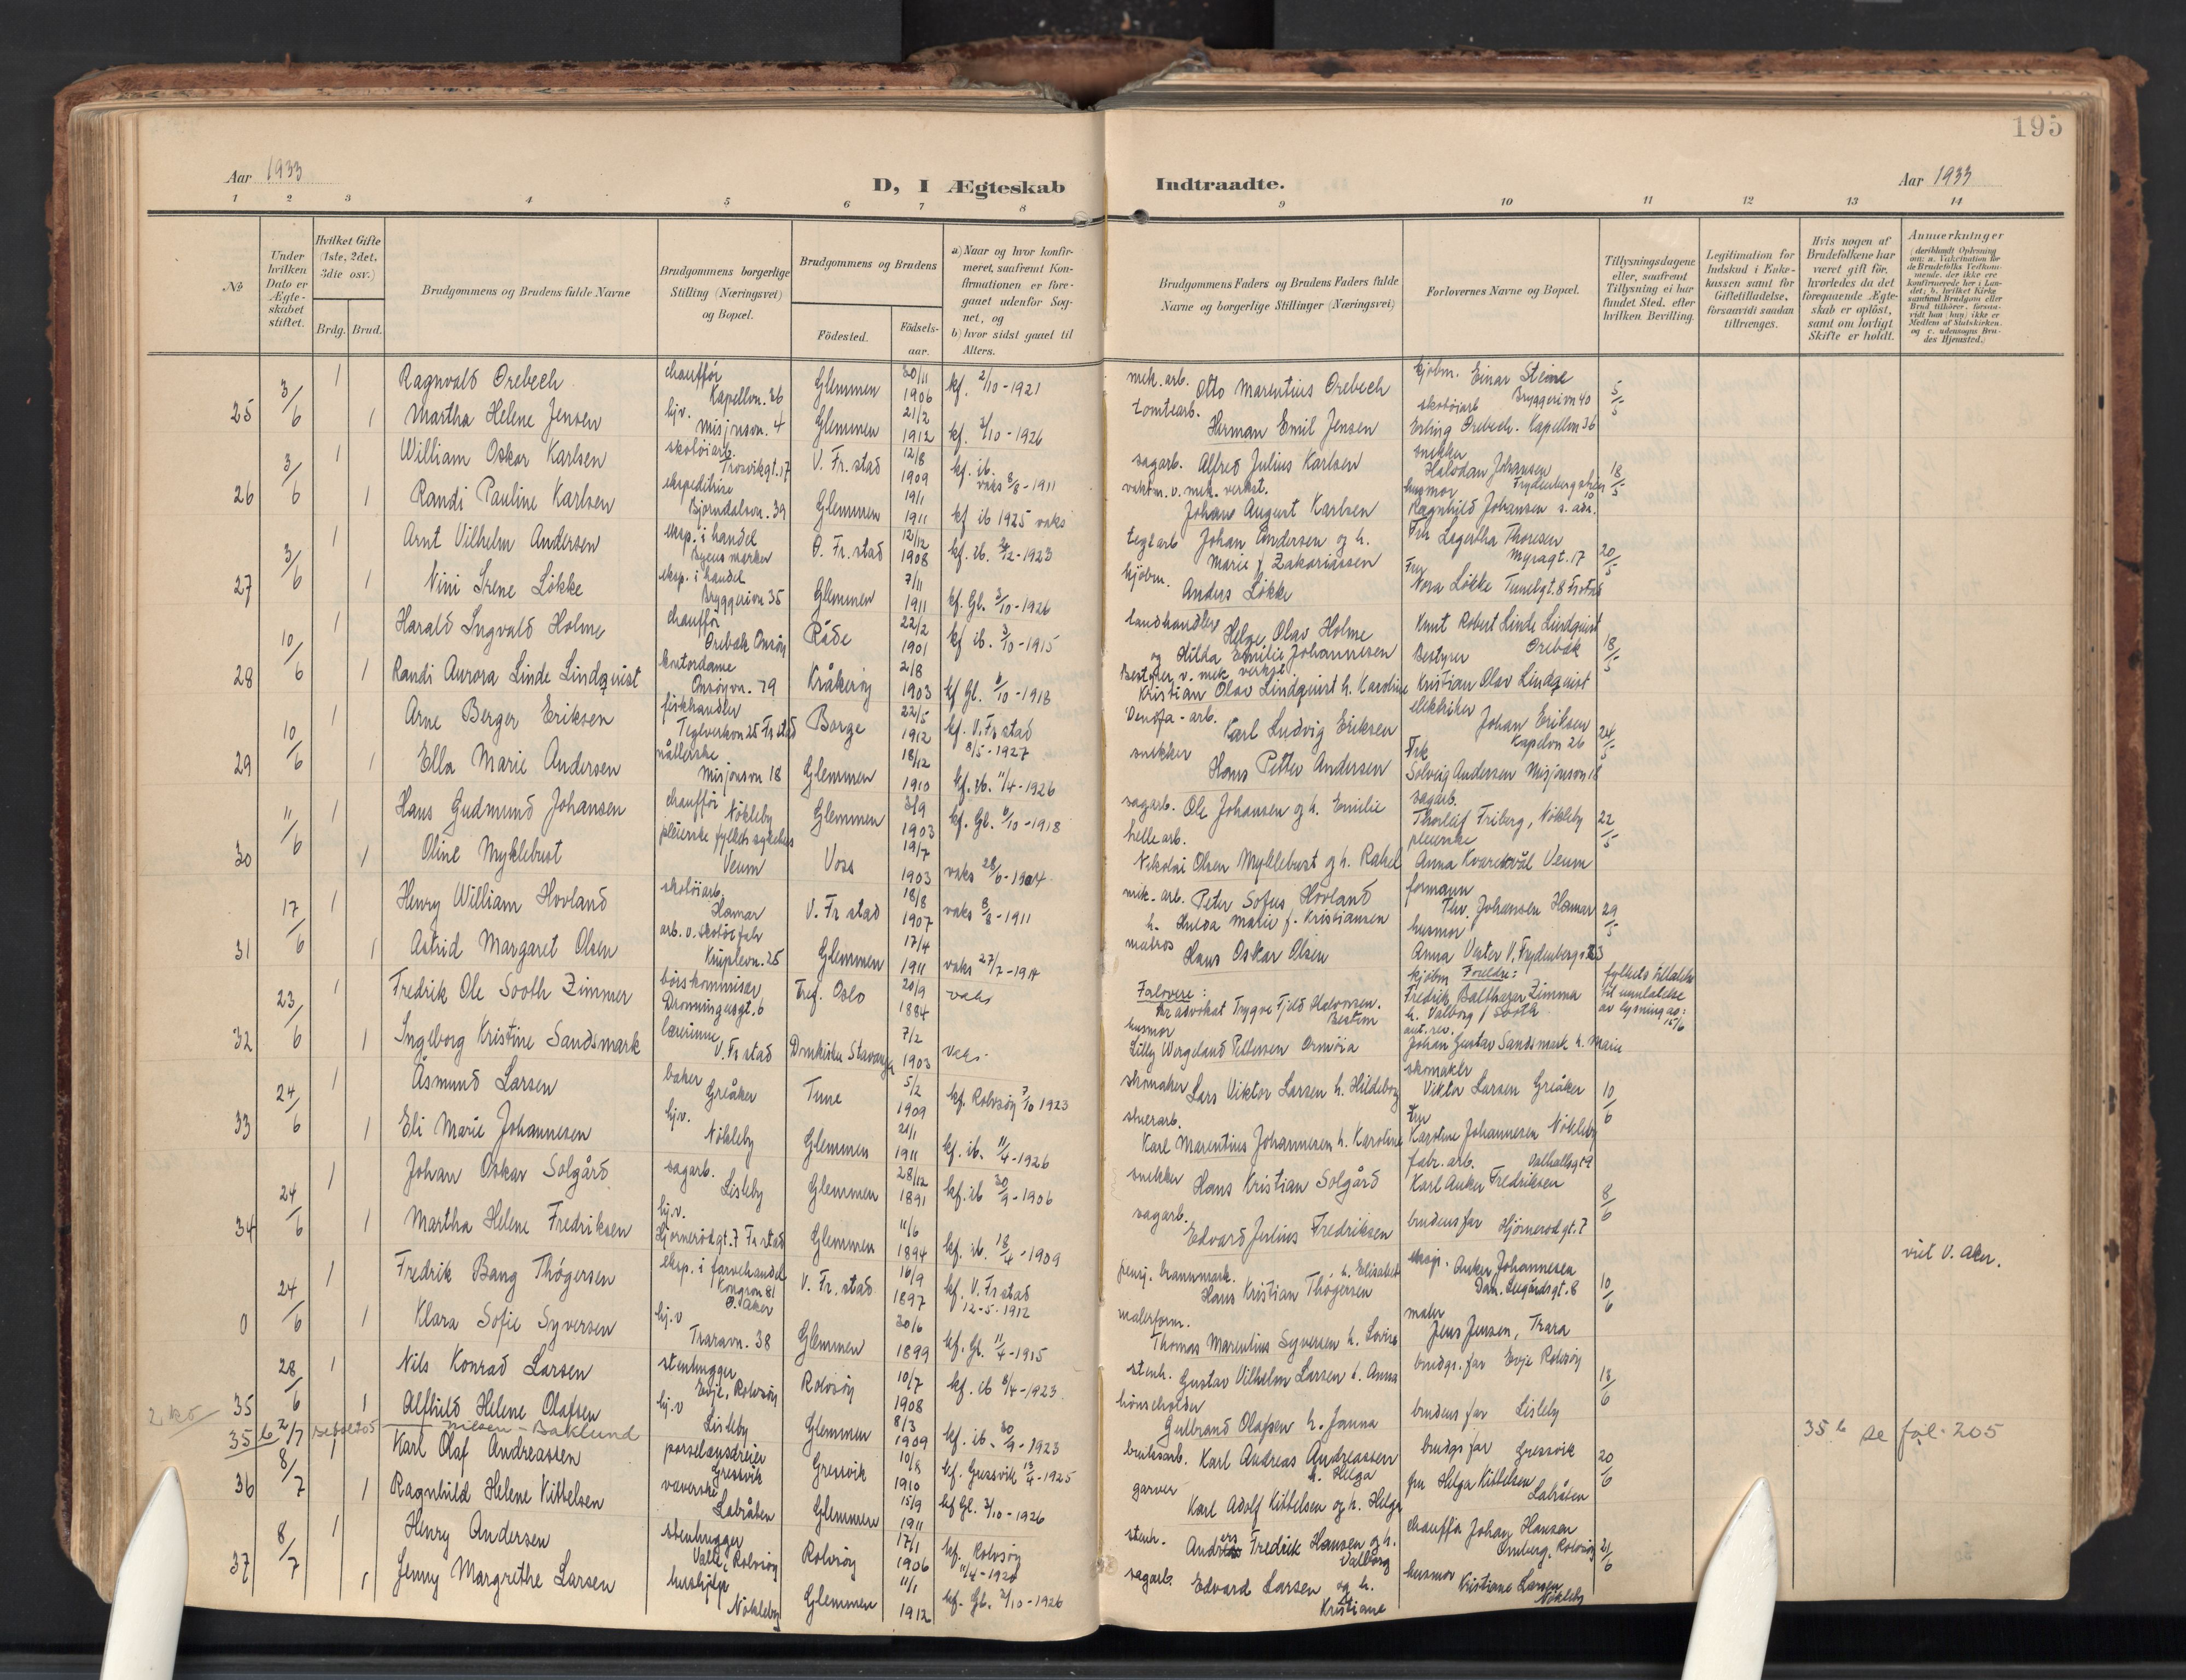 195
Aar 1933
D, I Ægteskab Indtraadte.
Aar 1933
1 2 3 4 5 6 7 8 9 10 11 12 13 14
No
Under hvilken Dato er Ægteskabet stiftet.
Hvilket Gifte (1ste, 2det, 3die osv.)
Brdg. Brud.
Brudgommens og Brudens fulde Navne
Brudgommens borgerlige Stilling (Næringsvei) og Bopæl.
Brudgommens og Brudens
Födested.
Födsels-aar.
a) Naar og hvor konfirmeret, saafremt Konfirmationen er foregaaet udenfor Sognet, og
b) hvor sidst gaaet til Alters.
Brudgommens Faders og Brudens Faders fulde Navne og borgerlige Stillinger (Næringsvei)
Forlovernes Navne og Bopæl.
Tillysningsdagene eller, saafremt Tillysning ei har fundet Sted, efter hvilken Bevilling.
Legitimation for Indskud i Enkekassen samt for Giftetilladelse, forsaavidt saadan tiltrænges.
Hvis nogen af Brudefolkene har været gift før, hvorledes da det foregaaende Ægteskab er opløst, samt om lovligt Skifte er holdt.
Anmerkninger
25 3/6 1 Ragnvald Orebech chauffør Kapellvn. 36 Glemmen 30/11 1906 kf. 2/10-1921 mek. arb. Otto Marentius Orebech kjøbm. Einar Steine Bryggerivn 40 5/5
1 Martha Helene Jensen hjv. Misjonsvn. 4 Glemmen 21/2 1912 kf. 3/10-1926 tomtearb. Herman Emil Jensen skotøiarb Erling Orebech. Kapellvn 36
26 3/6 1 William Oskar Karlsen skotøiarb. Trosvikgt. 17 V. Fr. stad 12/8 1909 kf. ib. vaks 8/8-1911 sagarb. Alfred Julius Karlsen snekker Halvdan Johansen 18/5
1 Randi Pauline Karlsen ekspeditrise Bjørndalsvn. 39 Glemmen 19/1 1911 kf ib 1925 vaks vaktm. v. mek. verkst. Johan August Karlsen husmor Ragnhild Johansen s. adr.
27 3/6 1 Arnt Vilhelm Andersen eksp. i handel Ø. Fr. stad 12/12 1908 kf. ib. -1923 teglarb Johan Andersen og h. Marie f Zakariassen Fru Lagertha Thoresen Myragt. 17 20/5
1 Nini Irene Løkke eksp. i handel Bryggerivn 35 Glemmen 7/11 1911 kf. Gl. 3/10-1926 kjøbm. Anders Løkke Fru Nora Løkke Tunebgt. 8 Frstad
28 10/6 1 Harald Ingvald Holme chauffør Orebæk Onsøy Råde 22/2 1901 kf ib. 3/10-1915 landhandler Helge Olav Holme og Hilda Emilie Johannesen Knut Robert Linde Lindquist Bestyrer Orebæk 18/5
1 Randi Aurora Linde Lindquist kontordame Onsøyvn. 79 Kråkerøy 2/8 1903 kf Gl. 6/10-1918 Bestyrer v. mek. verkst. Kristian Olav Lindquist h. Karoline Kristian Olav Lindquist
29 10/6 1 Arne Berger Eriksen fiskhandler Teglverksvn 25 Fr stad Borge 22/5 1912 kf. V. Fr. stad 8/5-1927 Denofa-arb. Karl Ludvig Eriksen elektriker Johan Eriksen Kapelvn 26 24/5
1 Ella Marie Andersen nållerske Misjonsvn 18 Glemmen 18/12 1910 kf. ib. 11/4-1926 snekker Hans Petter Andersen Frk Solveig Andersen Misjonsvn 18
30 11/6 1 Hans Gudmund Johansen chauffør Nøkleby Glemmen 3/9 1903 kf. Gl. 6/10-1918 sagarb. Ole Johansen og h. Emilie sagarb. Thorleif Friberg, Nøkleby 22/5
1 Oline Myklebust pleierske fylkets sykehus Veum Voss 19/7 1903 vaks 28/6-1904 hellearb. Nikolai Olsen Myklebust og h. Rakel pleierske Anna Kvarekvål Veum
31 17/6 1 Henry William Hovland skotøiarb. Hamar V. Fr stad 18/8 1907 vaks 8/8-1911 mek. arb. Peter Sofus Hovland h. Hulda Marie f. Kristiansen formann Thv. Johansen Hamar 29/5
1 Astrid Margaret Olsen arb. v. skotøifabr Kniplevn. 25 Glemmen 17/4 1911 vaks 27/7-1914 matros Hans Oskar Olsen husmor Anna Vester V. Frydenbergst 23
32 23/6 1 Fredrik Ole Sooth Zimmer børskommisær Dronningensgt. 6 Oslo 20/9 1884 vaks Forlovere: advokat Trygve Fjeld Halvorsen. Bestum kjøbm Foreldre: Fredrik Balthazar Zimmer h. Valborg f Sooth fylkets tillatelse til unnlatelse av lysning ag: 15/6
1 Ingeborg Kristine Sandsmark lærerinne V. Fr stad Domkirken Stavanger 7/2 1903 vaks husmor Lilly Wergeland Pettersen Ormøia aut. rev. Johan Gustav Sandsmark h. Marie
33 24/6 1 Åsmund Larsen baker Greåker Tune 5/2 1909 kf. Rolvsøy 7/10 1923 skomaker Lars Viktor Larsen h. Hildeborg skomaker Viktor Larsen Greåker 10/6
1 Eli Marie Johannesen hjv. Nøkleby Glemmen 21/1 1911 kf. ib. 11/4-1926 stuerarb. Karl Marentius Johannesen h. Karoline Fru Karoline Johannesen Nøkleby
34 24/6 1 Johan Oskar Solgård sagarb. Lisleby Glemmen 28/12 1891 kf. ib 30/9-1906 snekker Hans Kristian Solgård fabr. arb. Valhallsgt 9 Karl Anker Fredriksen 8/6
1 Martha Helene Fredriksen hj.v. Hjørnerødgt. 7 Fr stad Glemmen 11/6 1894 kf. ib. 18/4-1909 sagarb. Edvard Julius Fredriksen brudens far Hjørnerødgt. 7
0 24/6 1 Fredrik Bang Thøgersen eksp. i farvehandel Kongsvn 81 V. Aker V. Fr. stad 16/9 1897 kf. V. Fr stad 12-5-1912 pensj. brannmark. Hans Kristian Thøgersen h. Elisabet eksp. Anker Johannesen Dam. Leegårdsgt. 8 10/6 viet V. Aker.
1 Klara Sofie Syversen hj.v Traravn. 38 Glemmen 30/6 1899 kf. Gl. 11/4-1915 malerform. Thomas Marentius Syversen h. Lovise maler Jens Jensen, Trara
35 28/6 1 Nils Konrad Larsen stenhugger Evje, Rolvsøy Rolvsøy 10/7 1908 kf. ib 8/4-1923 stenh. Gustav Vilhelm Larsen h. Anna brudgs. far Evje Rolvsøy 13/6
1 Alfhild Helene Olafsen hj.v Lisleby Glemmen 8/3 1909 kf. ib. 30/9-1923 hønseholder Gulbrand Olafsen h. Janna brudens far Lisleby
35 b 2/7 Se fol 205 Nilsen - Baklund 35 b se fol. 205
36 8/7 1 Karl Olaf Andreassen porselensdreier Gressvik Gressvik 10/8 1910 kf. Gressvik 13/4-1925 bruksarb. Karl Andreas Andreassen h. Helga brudgs far Gressvik 20/6
1 Ragnhild Helene Kittelsen væverske Labråten Glemmen 15/9 1911 kf Gl. 3/10-1926 garver Karl Adolf Kittelsen og h. Helga fru Helga Kittelsen Labråten
37 8/7 1 Henry Andersen stenhugger Valle, Rolvsøy Rolvsøy 17/1 1906 kf. Rolvsøy 11/4-1920 stenh. Anders Fredrik Hansen og h. Valborg chauffør Johan Hansen Omberg, Rolvsøy 21/6
1 Jenny Margrethe Larsen hushjelp Nøkleby Glemmen 11/1 1912 kf. Gl. 3/10-1926 sagarb. Edvard Larsen og h. Kristiane husmor Kristiane Larsen Nøkleby